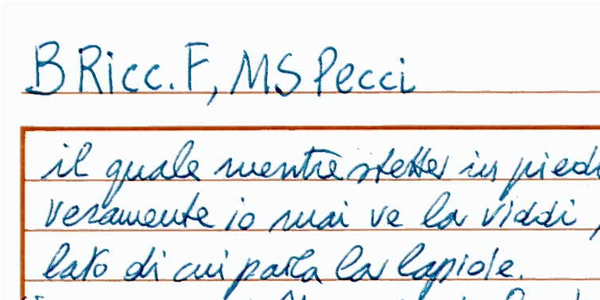 B Ricc. F, MS Pecci
il quale mentre stette in piedi
veramente io mai ve la viddi,
lato di cui parla la lapide.